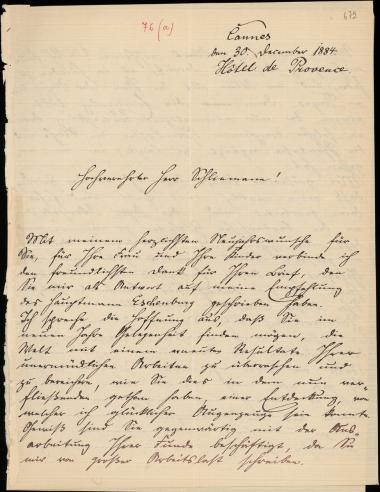 76 (a)
679
Cannes
den 30. December 1884
Hôtel de Provence
Hochverehrter Herr Schliemann!
Mit meinem herzlichsten Neujahrswunsche für
Sie, für Ihre Frau und Ihre Kinder verbinde ich
den freundlichsten Dank für Ihren Brief, den
Sie mir als Antwort auf meine Empfehlung
des Hauptmann Eschenburg geschrieben haben.
Ich spreche die Hoffnung aus, daß Sie im
neuen Jahre Gelegenheit finden mögen, die
Welt mit einem Resultate Ihrer
unermüdlichen Arbeiten zu überraschen und
zu bereichern, wie Sie dies in dem nun ver-
fließenden gethan haben, einer Entdeckung, von
welcher ich glücklicher Augenzeuge sein konnte.
Gewiß sind Sie gegenwärtig mit der Aus-
arbeitung Ihrer Funde beschäftigt, da Sie
mir von großer Arbeitslast schreiben.